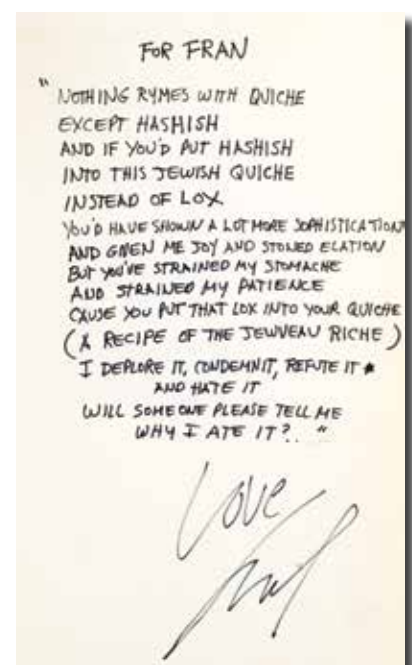 FOR FRAN
"NOTHING RYMES WITH QUICHE
EXCEPT HASHISH
AND IF YOU'D PUT HASHISH
INTO THIS JEWISH QUICHE
INSTEAD OF LOX
YOU'D HAVE SHOWN A LOT MORE SOPHISTICATION
AND GIVEN ME JOY AND STONED ELATION
BUT YOU'VE STRAINED MY STOMACHE
AND STRAINED MY PATIENCE
CAUSE YOU PUT THAT LOX INTO YOUR QUICHE
(A RECIPE OF THE JEWVEAU RICHE)
I DEPLORE IT, CONDEMNIT, REFUTE IT
AND HATE IT
WILL SOMEONE PLEASE TELL ME
WHY I ATE IT?.. "
Love